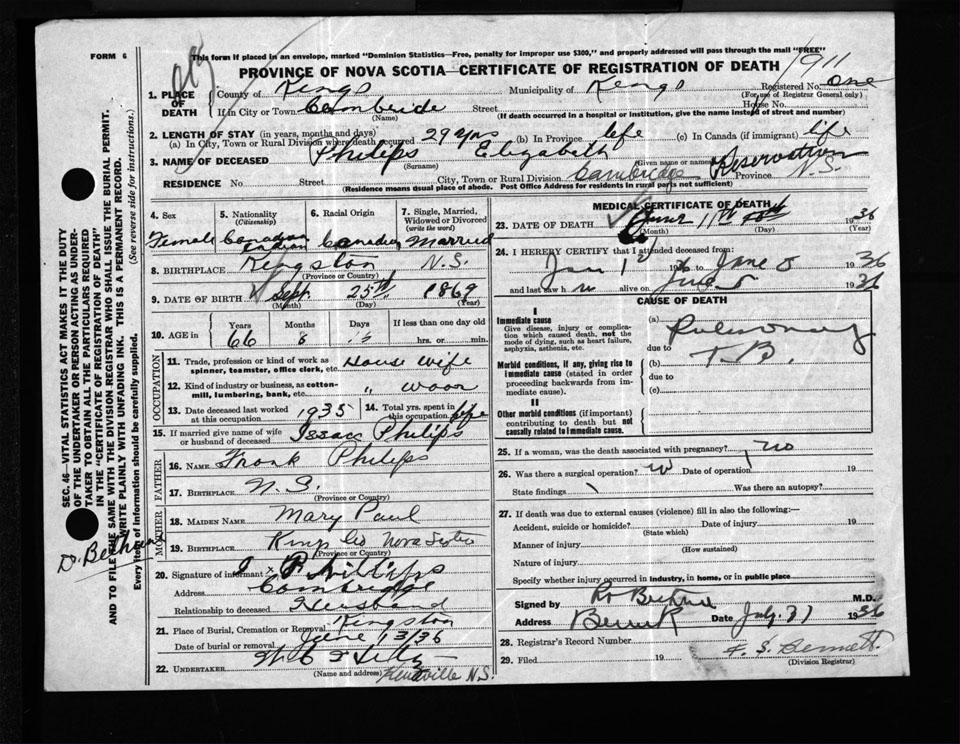 FORM 6
This form if placed in an envelope, marked "Dominion Statistics—Free, penalty for improper use $300," and properly addressed will pass through the mail "FREE"
1911
PROVINCE OF NOVA SCOTIA—CERTIFICATE OF REGISTRATION OF DEATH
1. PLACE OF DEATH
County of Kings Municipality of Kings Registered No. one
(For use of Registrar General only)
If in City or Town Cambride Street House No.
(Name) (If death occurred in a hospital or institution, give the name instead of street and number)
2. LENGTH OF STAY (in years, months and days)
(a) In City, Town or Rural Division where death occurred 29 yrs (b) In Province life (c) In Canada (if immigrant) life
3. NAME OF DECEASED Philips Elizabeth
(Surname) (Given name or names)
RESIDENCE No. Street City, Town or Rural Division Cambridge Reservation Province N.S.
(Residence means usual place of abode. Post Office Address for residents in rural parts not sufficient)
4. Sex Female
5. Nationality (Citizenship) Canadian Indian
6. Racial Origin Canadian
7. Single, Married, Widowed or Divorced (write the word) Married
8. BIRTHPLACE Kingston N.S.
(Province or Country)
9. DATE OF BIRTH Sept. 25th 1869
(Month) (Day) (Year)
10. AGE in Years 66 Months 8 Days If less than one day old hrs. or min.
OCCUPATION
11. Trade, profession or kind of work as spinner, teamster, office clerk, etc. House wife
12. Kind of industry or business, as cotton-mill, lumbering, bank, etc. "
13. Date deceased last worked at this occupation 1935
14. Total yrs. spent in this occupation life
15. If married give name of wife or husband of deceased Issacc Philips
FATHER
16. NAME Frank Philips
17. BIRTHPLACE N.S.
(Province or Country)
MOTHER
18. MAIDEN NAME Mary Paul
19. BIRTHPLACE Kings Co Nova Scotia
(Province or Country)
20. Signature of informant x I. Phillips
Address Cambridge
Relationship to deceased Husband
21. Place of Burial, Cremation or Removal Kingston
Date of burial or removal June 13/36
22. UNDERTAKER
(Name and address) Kentville N.S.
MEDICAL CERTIFICATE OF DEATH
23. DATE OF DEATH June 11th 1936
(Month) (Day) (Year)
24. I HEREBY CERTIFY that I attended deceased from:
Jan 1st 1936 to June 5 1936
and last saw h alive on June 5 1936
CAUSE OF DEATH
I
Immediate cause
Give disease, injury or complication which caused death, not the mode of dying, such as heart failure, asphyxia, asthenia, etc.
(a) Pulmonary
due to T.B.
Morbid conditions, if any, giving rise to immediate cause (stated in order proceeding backwards from immediate cause).
(b)
due to
(c)
II
Other morbid conditions (if important) contributing to death but not causally related to immediate cause.
25. If a woman, was the death associated with pregnancy? no
26. Was there a surgical operation? no Date of operation 19
State findings Was there an autopsy?
27. If death was due to external causes (violence) fill in also the following:—
Accident, suicide or homicide? Date of injury 19
(State which)
Manner of injury
(How sustained)
Nature of injury
Specify whether injury occurred in industry, in home, or in public place
Signed by M.D.
Address Berwick Date July 31 1936
28. Registrar's Record Number
29. Filed 19 F. S. Bennett
(Division Registrar)
SEC. 46—VITAL STATISTICS ACT MAKES IT THE DUTY OF THE UNDERTAKER OR PERSON ACTING AS UNDERTAKER TO OBTAIN ALL THE PARTICULARS REQUIRED IN THE "CERTIFICATE OF REGISTRATION OF DEATH" AND TO FILE THE SAME WITH THE DIVISION REGISTRAR WHO SHALL ISSUE THE BURIAL PERMIT.
WRITE PLAINLY WITH UNFADING INK. THIS IS A PERMANENT RECORD.
Every item of information should be carefully supplied. (See reverse side for instructions.)